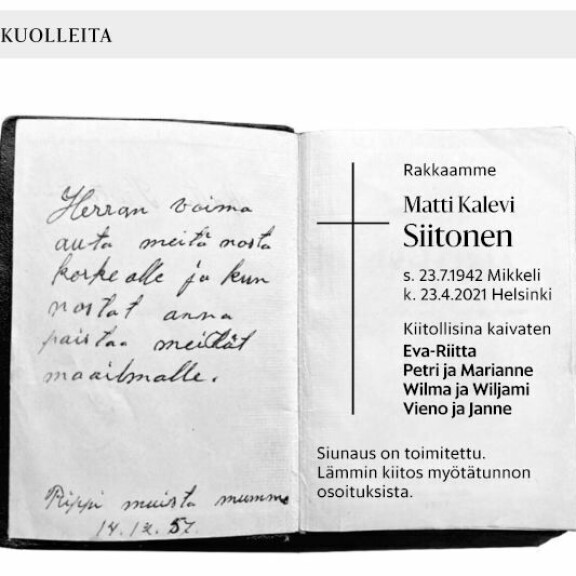 KUOLLEITA
Herran voima
auta meitä nosta
korkealle ja kun
nostat anna
paistaa meidät
maailmalle.
Rippi muisto mummo
Rakkaamme
Matti Kalevi
Siitonen
s. 23.7.1942 Mikkeli
k. 23.4.2021 Helsinki
Kiitollisina kaivaten
Eva-Riitta
Petri ja Marianne
Wilma ja Wiljami
Vieno ja Janne
Siunaus on toimitettu.
Lämmin kiitos myötätunnon
osoituksista.